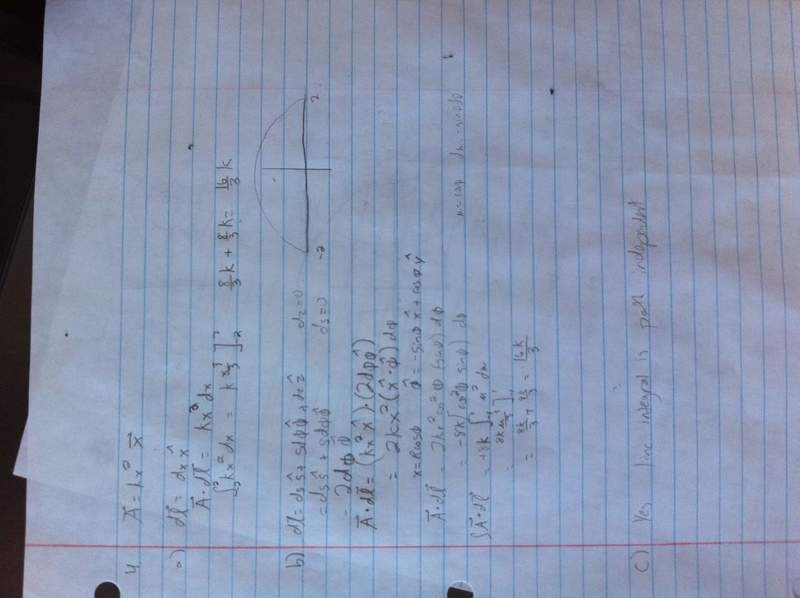 4. A⃗ = kx² x⃗
a) dl⃗ = dx x̂
A⃗·dl⃗ = kx² dx
∫₋₂² kx² dx = k x³/3 ]₋₂² 8/3 k + 8/3 k = 16/3 k
-2 2
b) dl⃗ = ds ŝ + s dφ φ̂ + dz ẑ dz=0
= ds ŝ + s dφ φ̂ ds=0
= 2dφ φ̂
A⃗·dl⃗ = (kx² x̂)·(2dφ φ̂)
= 2kx² (x̂·φ̂) dφ
x = R cosφ φ̂ = -sinφ x̂ + cosφ ŷ
A⃗·dl⃗ = 2kr² cos²φ (-sinφ) dφ
= -8k [cos²φ sinφ] dφ u = cosφ du -sinφ dφ
∫A⃗·dl⃗ = +8k ∫₋₁¹ u² du
8k u³/3 ]₋₁¹
= 8k/3 + 8k/3 = 16k/3
c) Yes line integral is path independent